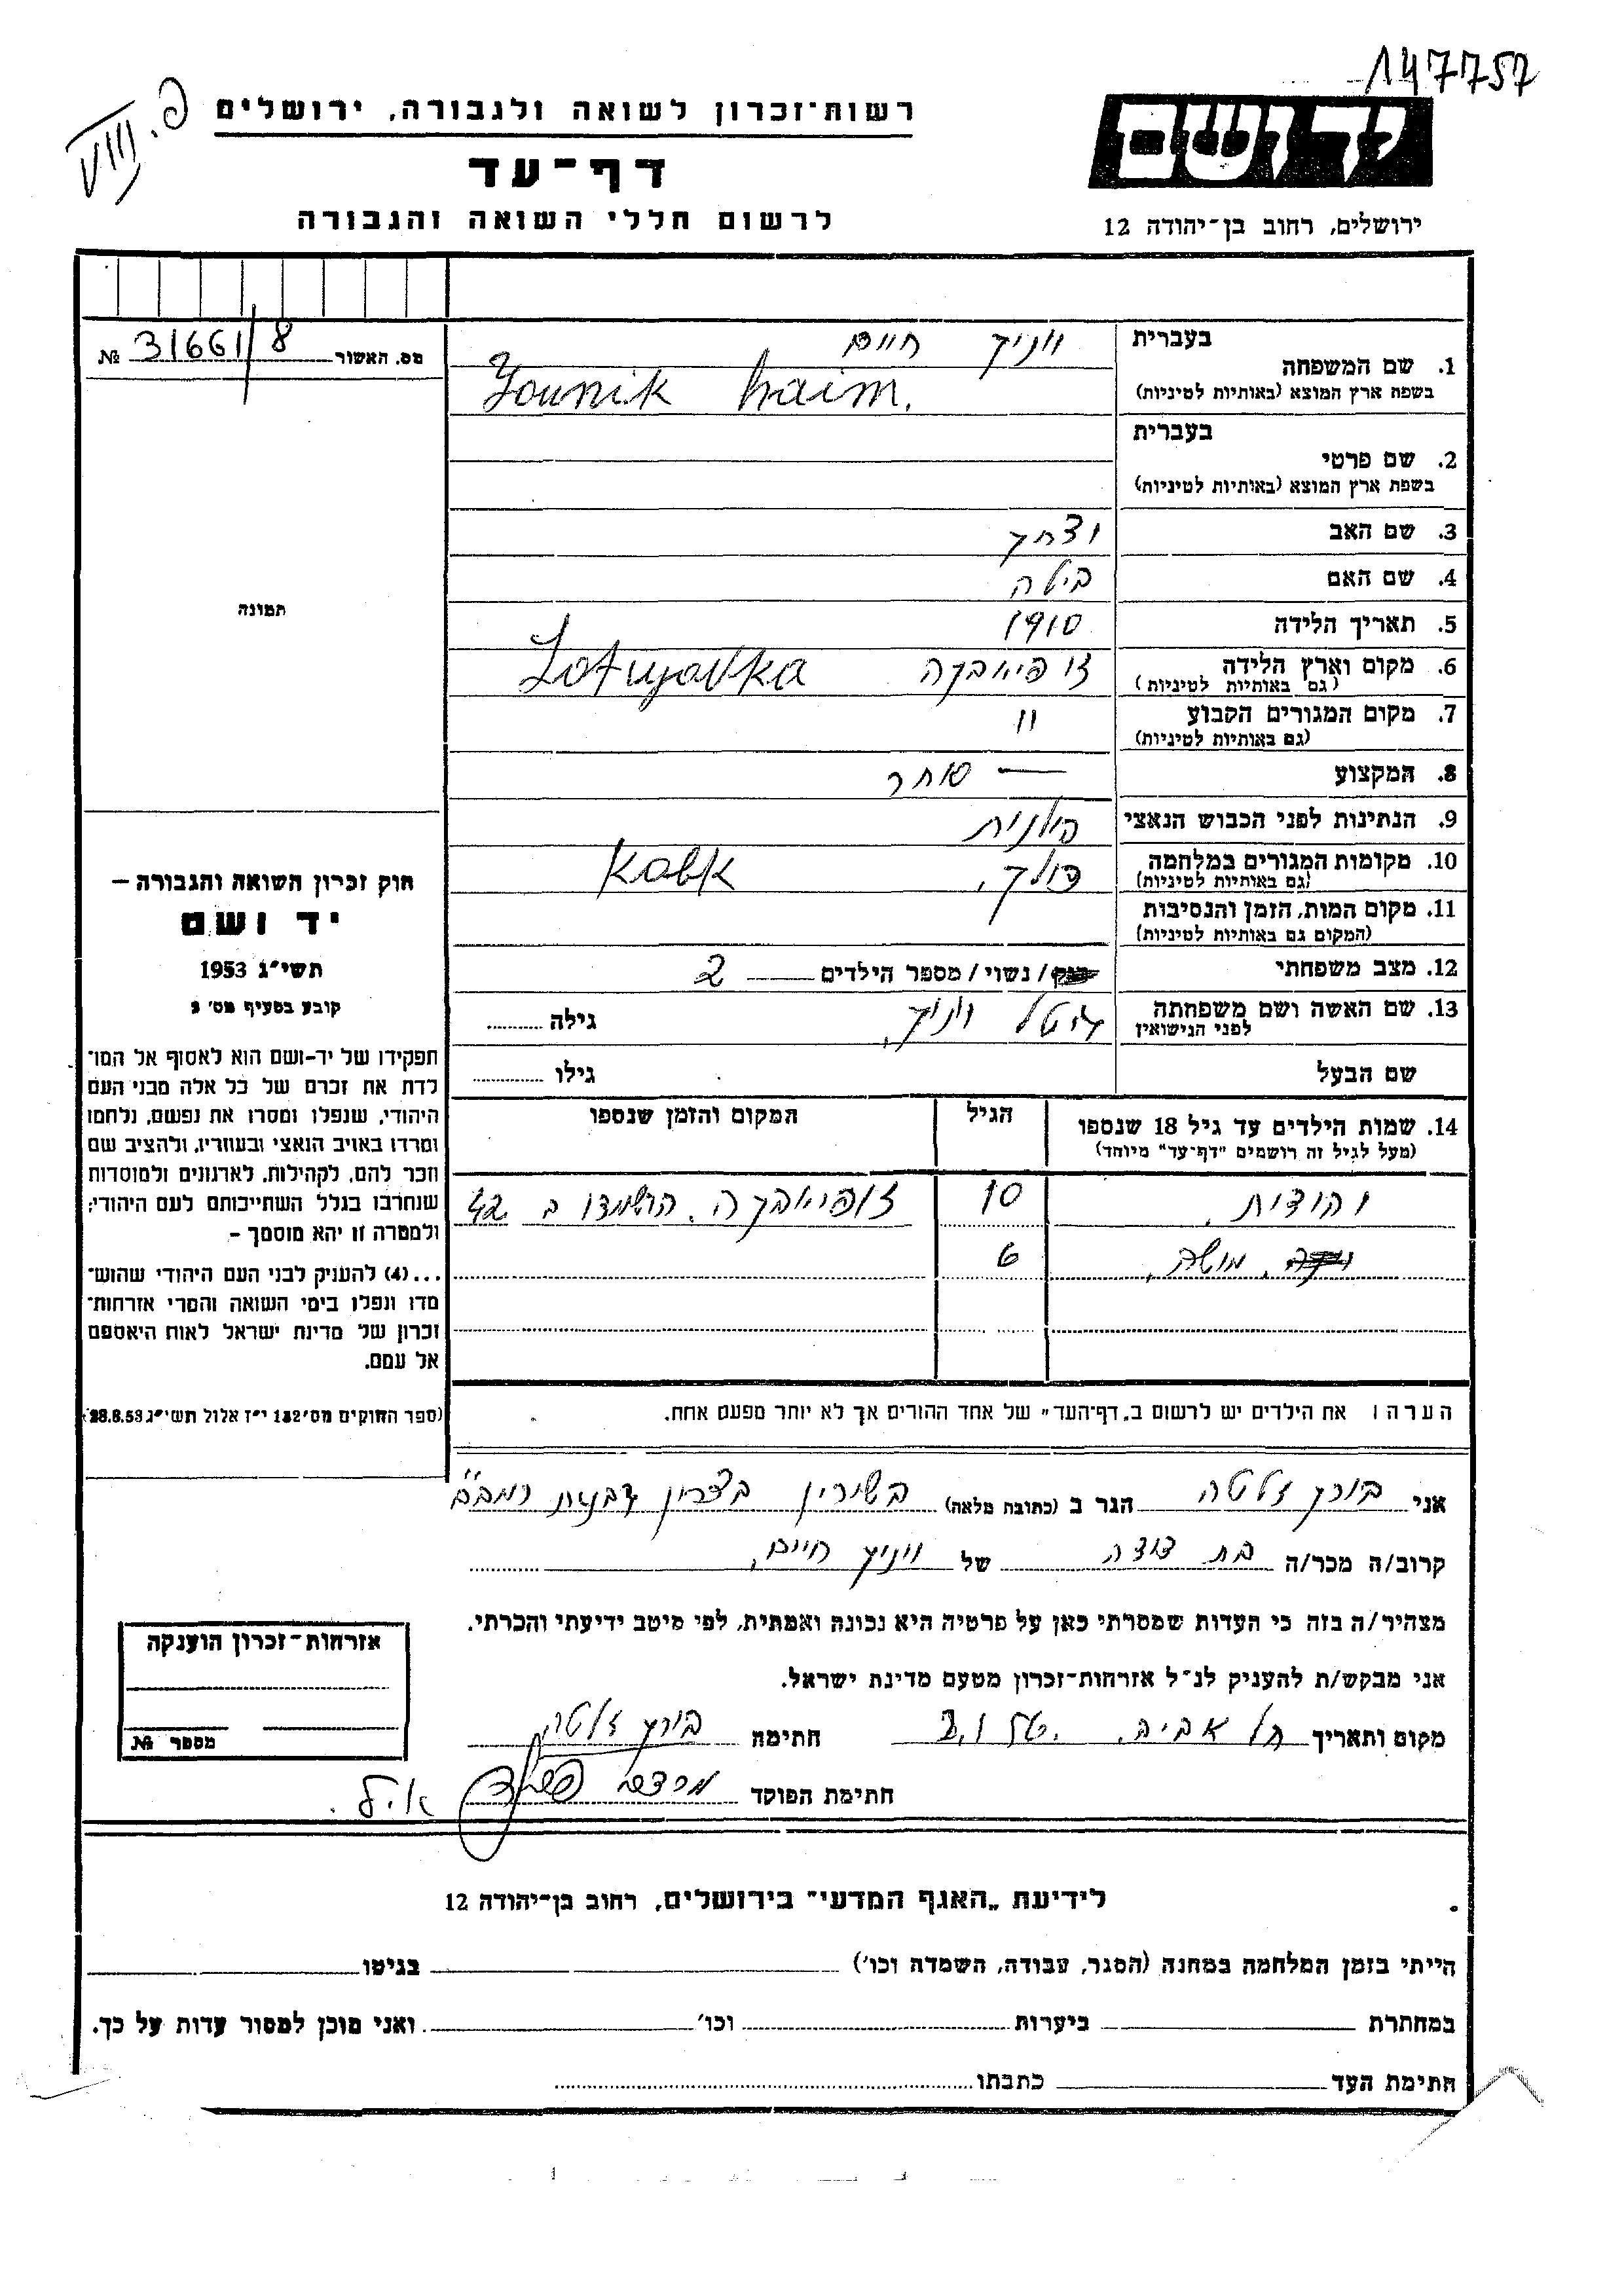 147757
VIII. פ.
רשות־זכרון לשואה ולגבורה, ירושלים
דף־עד
לרשום חללי השואה והגבורה
יד ושם
ירושלים, רחוב בן־יהודה 12
מס. האשור 31661/8 №
בעברית
1. שם המשפחה
בשפת ארץ המוצא (באותיות לטיניות)
יוניק חיים
Younik haim.
בעברית
2. שם פרטי
בשפת ארץ המוצא (באותיות לטיניות)
3. שם האב יצחק
4. שם האם בילה
5. תאריך הלידה 1910
6. מקום וארץ הלידה זופיאבקה
(גם באותיות לטיניות)
7. מקום המגורים הקבוע "
(גם באותיות לטיניות)
8. המקצוע — סוחר
9. הנתינות לפני הכבוש הנאצי פולנית
10. מקומות המגורים במלחמה
(גם באותיות לטיניות)
11. מקום המות, הזמן והנסיבות
(המקום גם באותיות לטיניות)
12. מצב משפחתי רווק/ נשוי/ מספר הילדים 2
13. שם האשה ושם משפחתה
לפני הנישואין
גיטל יוניק, גילה
שם הבעל גילו
14. שמות הילדים עד גיל 18 שנספו
(מעל לגיל זה רושמים "דף־עד" מיוחד)
הגיל
המקום והזמן שנספו
יהודית, 10 זופיאבקה. הושמדו ב 42
משה, 6
הערה: את הילדים יש לרשום ב„דף־העד" של אחד ההורים אך לא יותר מפעם אחת.
תמונה
חוק זכרון השואה והגבורה –
יד ושם
תשי"ג 1953
קובע בסעיף מס' 2
תפקידו של יד-ושם הוא לאסוף אל המו־
לדת את זכרם של כל אלה מבני העם
היהודי, שנפלו ומסרו את נפשם, נלחמו
ומרדו באויב הנאצי ובעוזריו, ולהציב שם
וזכר להם, לקהילות, לארגונים ולמוסדות
שנחרבו בגלל השתייכותם לעם היהודי;
ולמטרה זו יהא מוסמך –
...(4) להעניק לבני העם היהודי שהוש־
מדו ונפלו בימי השואה והמרי אזרחות־
זכרון של מדינת ישראל לאות היאספם
אל עמם.
(ספר החוקים מס' 132 י"ז אלול תשי"ג 28.8.53)
אני בורק זלטה הגר ב (כתובת מלאה)
קרוב/ה מכר/ה בת דודה של יוניק חיים,
מצהיר/ה בזה כי העדות שמסרתי כאן על פרטיה היא נכונה ואמתית, לפי מיטב ידיעתי והכרתי.
אני מבקש/ת להעניק לנ"ל אזרחות־זכרון מטעם מדינת ישראל.
מקום ותאריך תל אביב. חתימה בורק זלטה
חתימת הפוקד
אזרחות־זכרון הוענקה
מספר №
לידיעת „האגף המדעי" בירושלים, רחוב בן־יהודה 12
הייתי בזמן המלחמה במחנה (הסגר, עבודה, השמדה וכו') בגיטו
במחתרת ביערות וכו' ואני מוכן למסור עדות על כך.
חתימת העד כתבתו